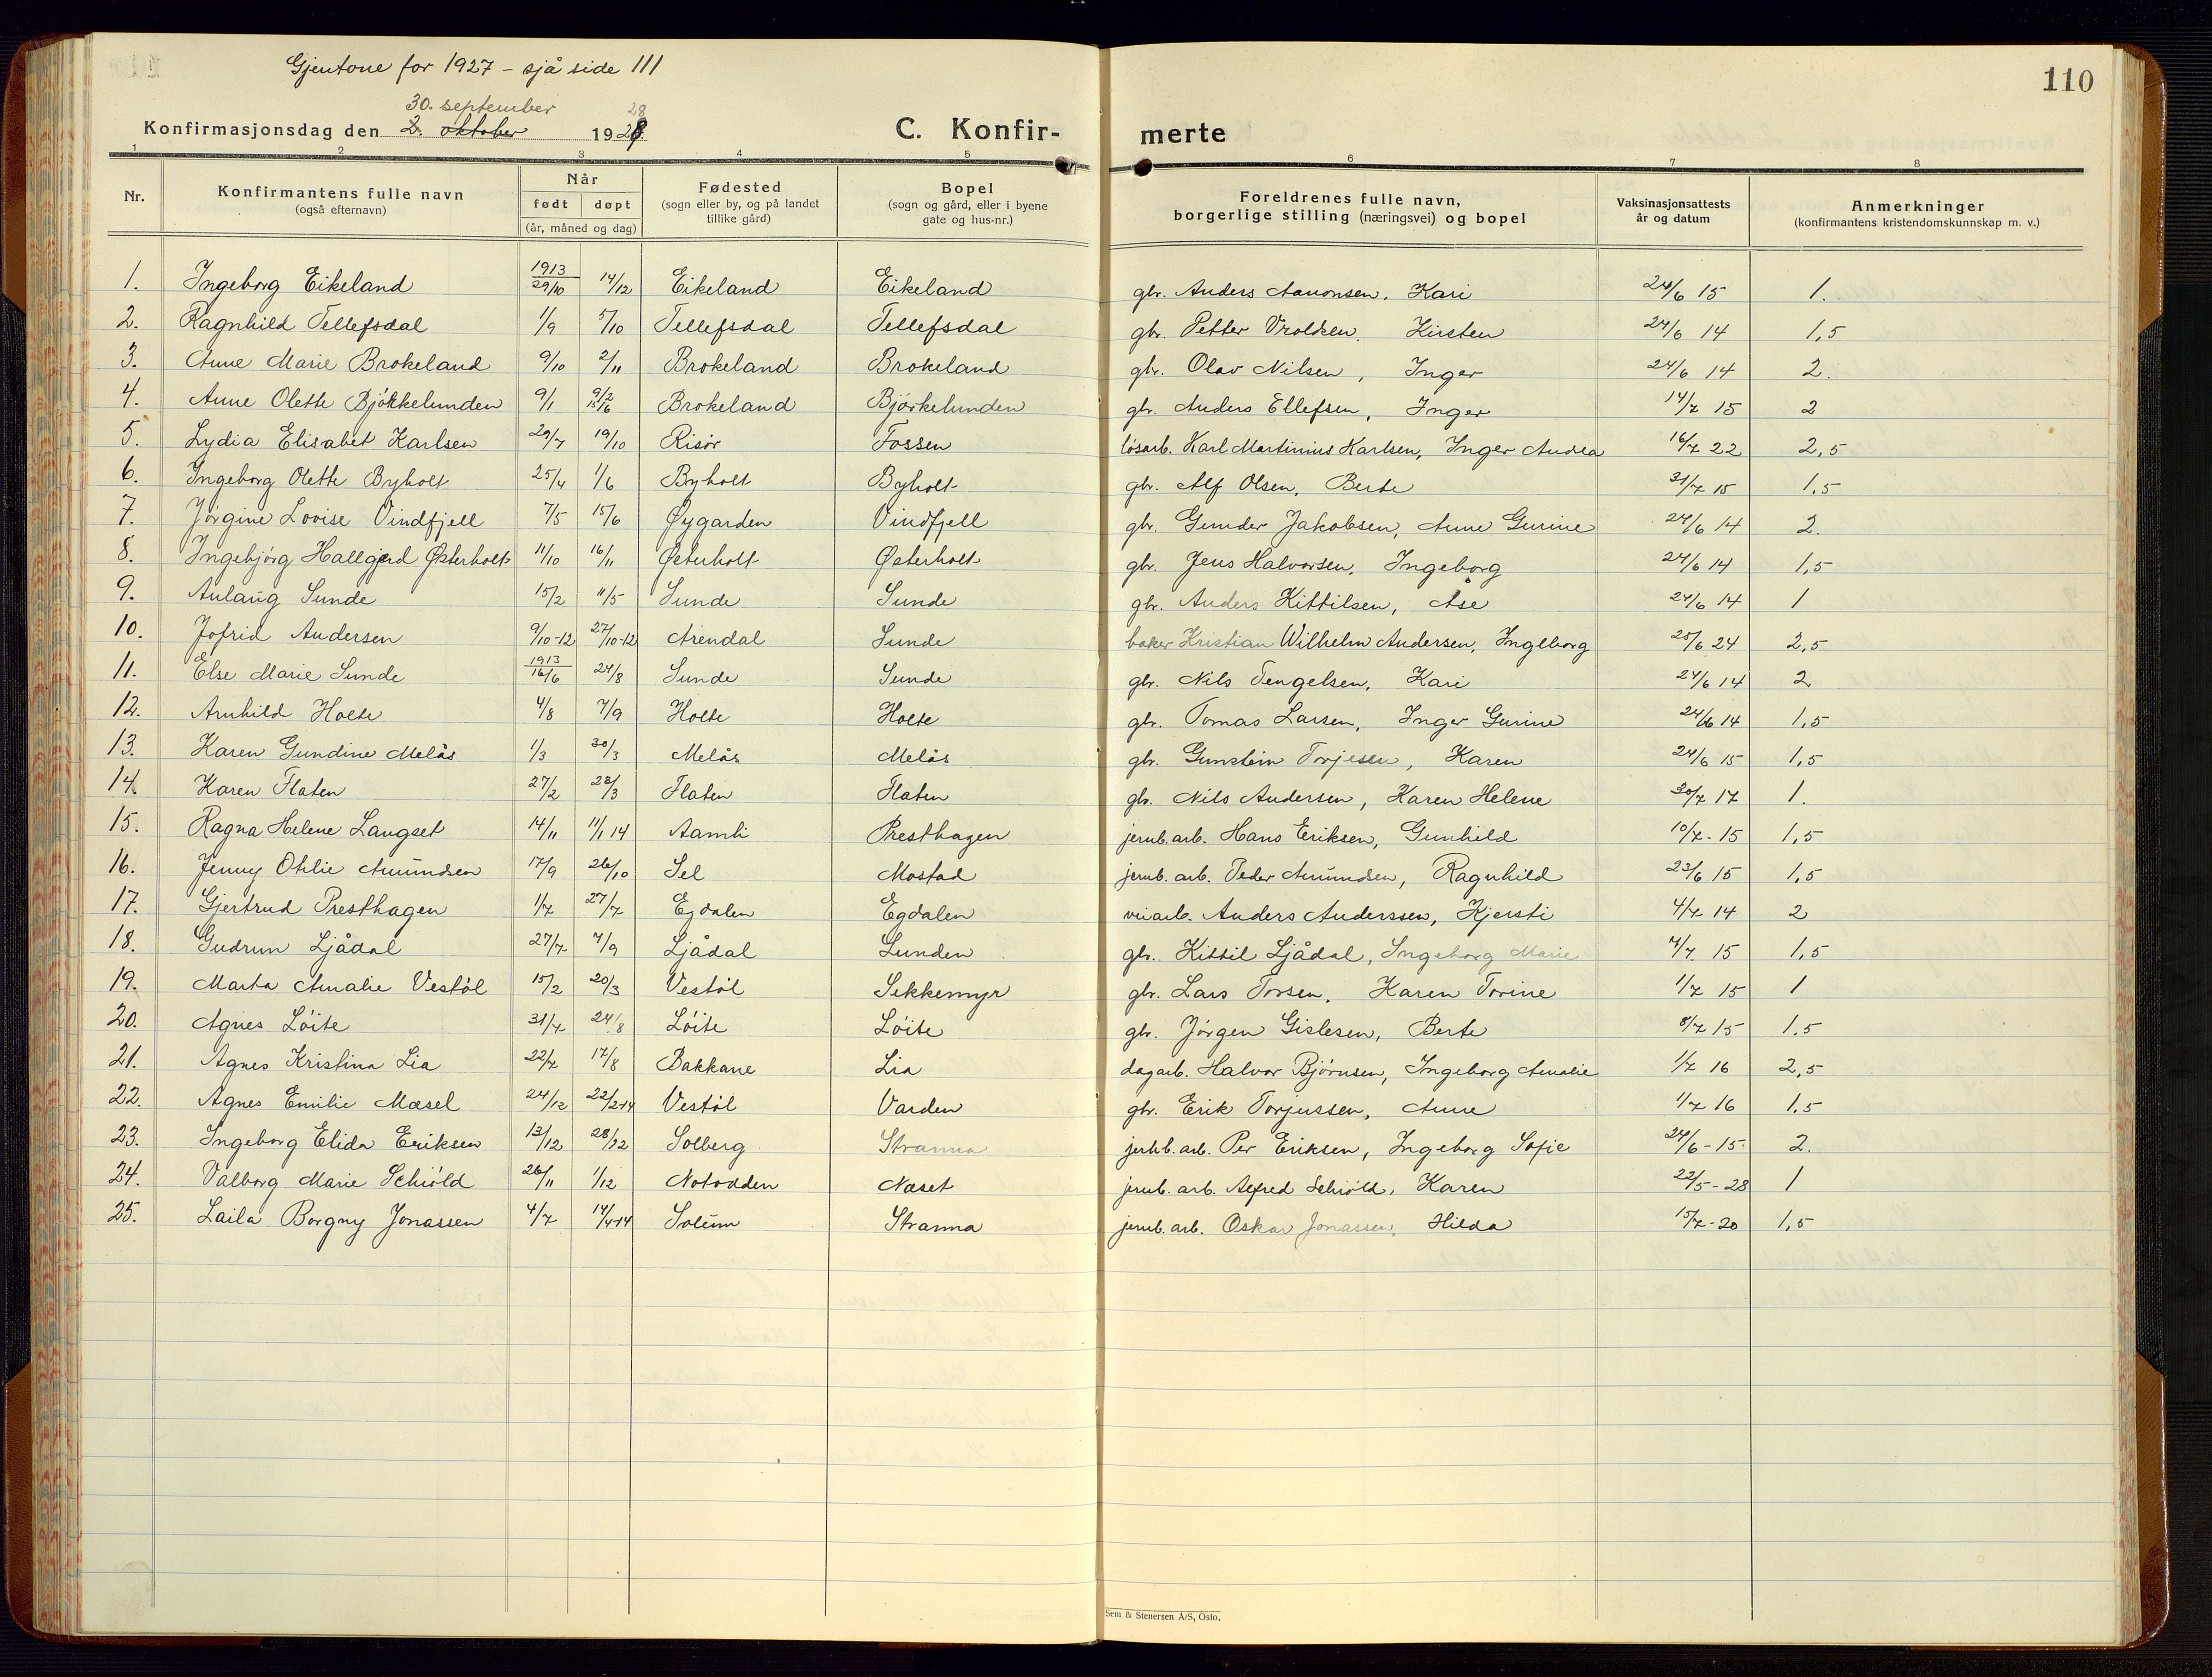 110
Gjentone for 1927 - sjå side 111
30. september
28
Konfirmasjonsdag den 2. oktober 1928.
C. Konfir-
merte
1 2 3 4 5 6 7 8
Nr. Konfirmantens fulle navn (også efternavn) Når født døpt (år, måned og dag) Fødested (sogn eller by, og på landet tillike gård) Bopel (sogn og gård, eller i byene gate og hus-nr.) Foreldrenes fulle navn, borgerlige stilling (næringsvei) og bopel Vaksinasjonsattests år og datum Anmerkninger (konfirmantens kristendomskunnskap m. v.)
1. Ingeborg Eikeland 1913 29/10 14/12 Eikeland Eikeland gbr. Anders Aanonsen, Kari 24/6 15 1.
2. Ragnhild Tellefsdal 1/9 5/10 Tellefsdal Tellefsdal gbr. Petter Vroldsen, Kirsten 24/6 14 1,5
3. Anne Marie Brokeland 9/10 2/11 Brokeland Brokeland gbr. Olav Nilsen, Inger 24/6 14 2.
4. Anne Olette Bjørkelunden 9/1 9/2 15/6 Brokeland Bjørkelunden gbr. Anders Ellefsen, Inger 14/7 15 2
5. Lydia Elisabet Karlsen 29/7 19/10 Risør Fossen løsarb. Karl Martinius Karlsen, Inger Andrea 16/7 22 2,5
6. Ingeborg Olette Byholt 25/4 1/6 Byholt Byholt gbr. Alf Olsen, Berte 31/7 15 1,5
7. Jørgine Lovise Vindfjell 7/5 15/6 Øygarden Vindfjell gbr. Gunder Jakobsen, Anne Gurine 24/6 14 2.
8. Ingebjørg Hallgjerd Østerholt 11/10 16/11 Østerholt Østerholt gbr. Jens Halvorsen, Ingeborg 24/6 14 1,5
9. Aslaug Sunde 15/2 11/5 Sunde Sunde gbr. Anders Kittilsen, Åse 24/6 14 1
10. Jofrid Andersen 9/10-12 27/10-12 Arendal Sunde baker Kristian Wilhelm Andersen, Ingeborg 25/6 24 2,5
11. Else Marie Sunde 1913 16/6 24/8 Sunde Sunde gbr. Nils Tengelsen, Kari 24/6 14 2
12. Arnhild Holte 4/8 7/9 Holte Holte gbr. Tomas Larsen, Inger Gurine 24/6 14 1,5
13. Karen Gundine Melås 1/3 30/3 Melås Melås gbr. Gunstein Torjesen, Karen 24/6 15 1,5
14. Karen Flaten 27/2 28/3 Flaten Flaten gbr. Nils Andersen, Karen Helene 30/7 17 1.
15. Ragna Helene Langset 14/11 11/1 14 Aamli Presthagen jernb. arb. Hans Eriksen, Gunhild 10/7-15 1,5
16. Jenny Otilie Amundsen 17/9 26/10 Sel Mostad jernb. arb. Peder Amundsen, Ragnhild 23/6 15 1,5
17. Gjertrud Presthagen 1/7 27/7 Egdalen Egdalen veiarb. Anders Anderssen, Kjersti 4/7 14 2
18. Gudrun Ljådal 27/7 7/9 Ljådal Lunden gbr. Kittil Ljådal, Ingeborg Marie 7/7 15 1,5
19. Marta Amalie Vestøl 15/2 20/3 Vestøl Sekkemyr gbr. Lars Torsen, Karen Torine 1/7 15 1
20. Agnes Løite 31/7 24/8 Løite Løite gbr. Jørgen Gislesen, Berte 8/7 15 1,5
21. Agnes Kristina Lia 22/7 17/8 Bakkane Lia dagarb. Halvor Bjørnsen, Ingeborg Amalie 1/7 16 2,5
22. Agnes Emilie Mæsel 24/12 22/2-14 Vestøl Varden gbr. Erik Torjussen, Anne 1/7 16 1,5
23. Ingeborg Elida Eriksen 13/12 28/12 Solberg Stranna jernb. arb. Per Eriksen, Ingeborg Sofie 24/6-15 2.
24. Valborg Marie Schiöld 26/11 1/12 Notodden Næset jernb. arb. Alfred Schiöld, Karen 22/5-28 1
25. Laila Borgny Jonassen 4/7 14/4-14 Solum Stranna jernb. arb. Oskar Jonassen, Hilda 15/7-20 1,5
Sem & Stenersen A/S, Oslo.